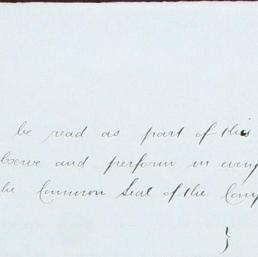 be read as part of this
and perform in every
the Common Seal of the
}